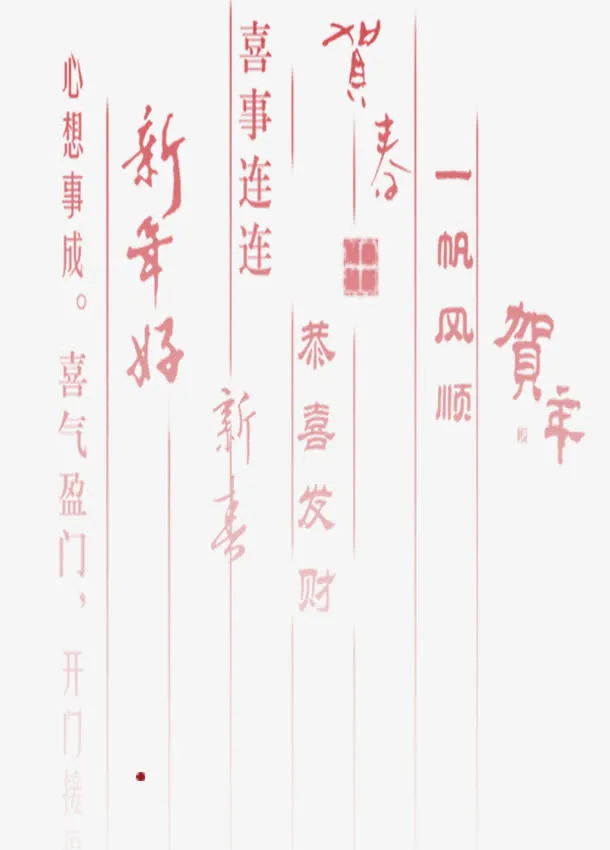 贺年
一帆风顺
賀春
恭喜发财
喜事连连
新春
新年好
心想事成。喜气盈门，开门接